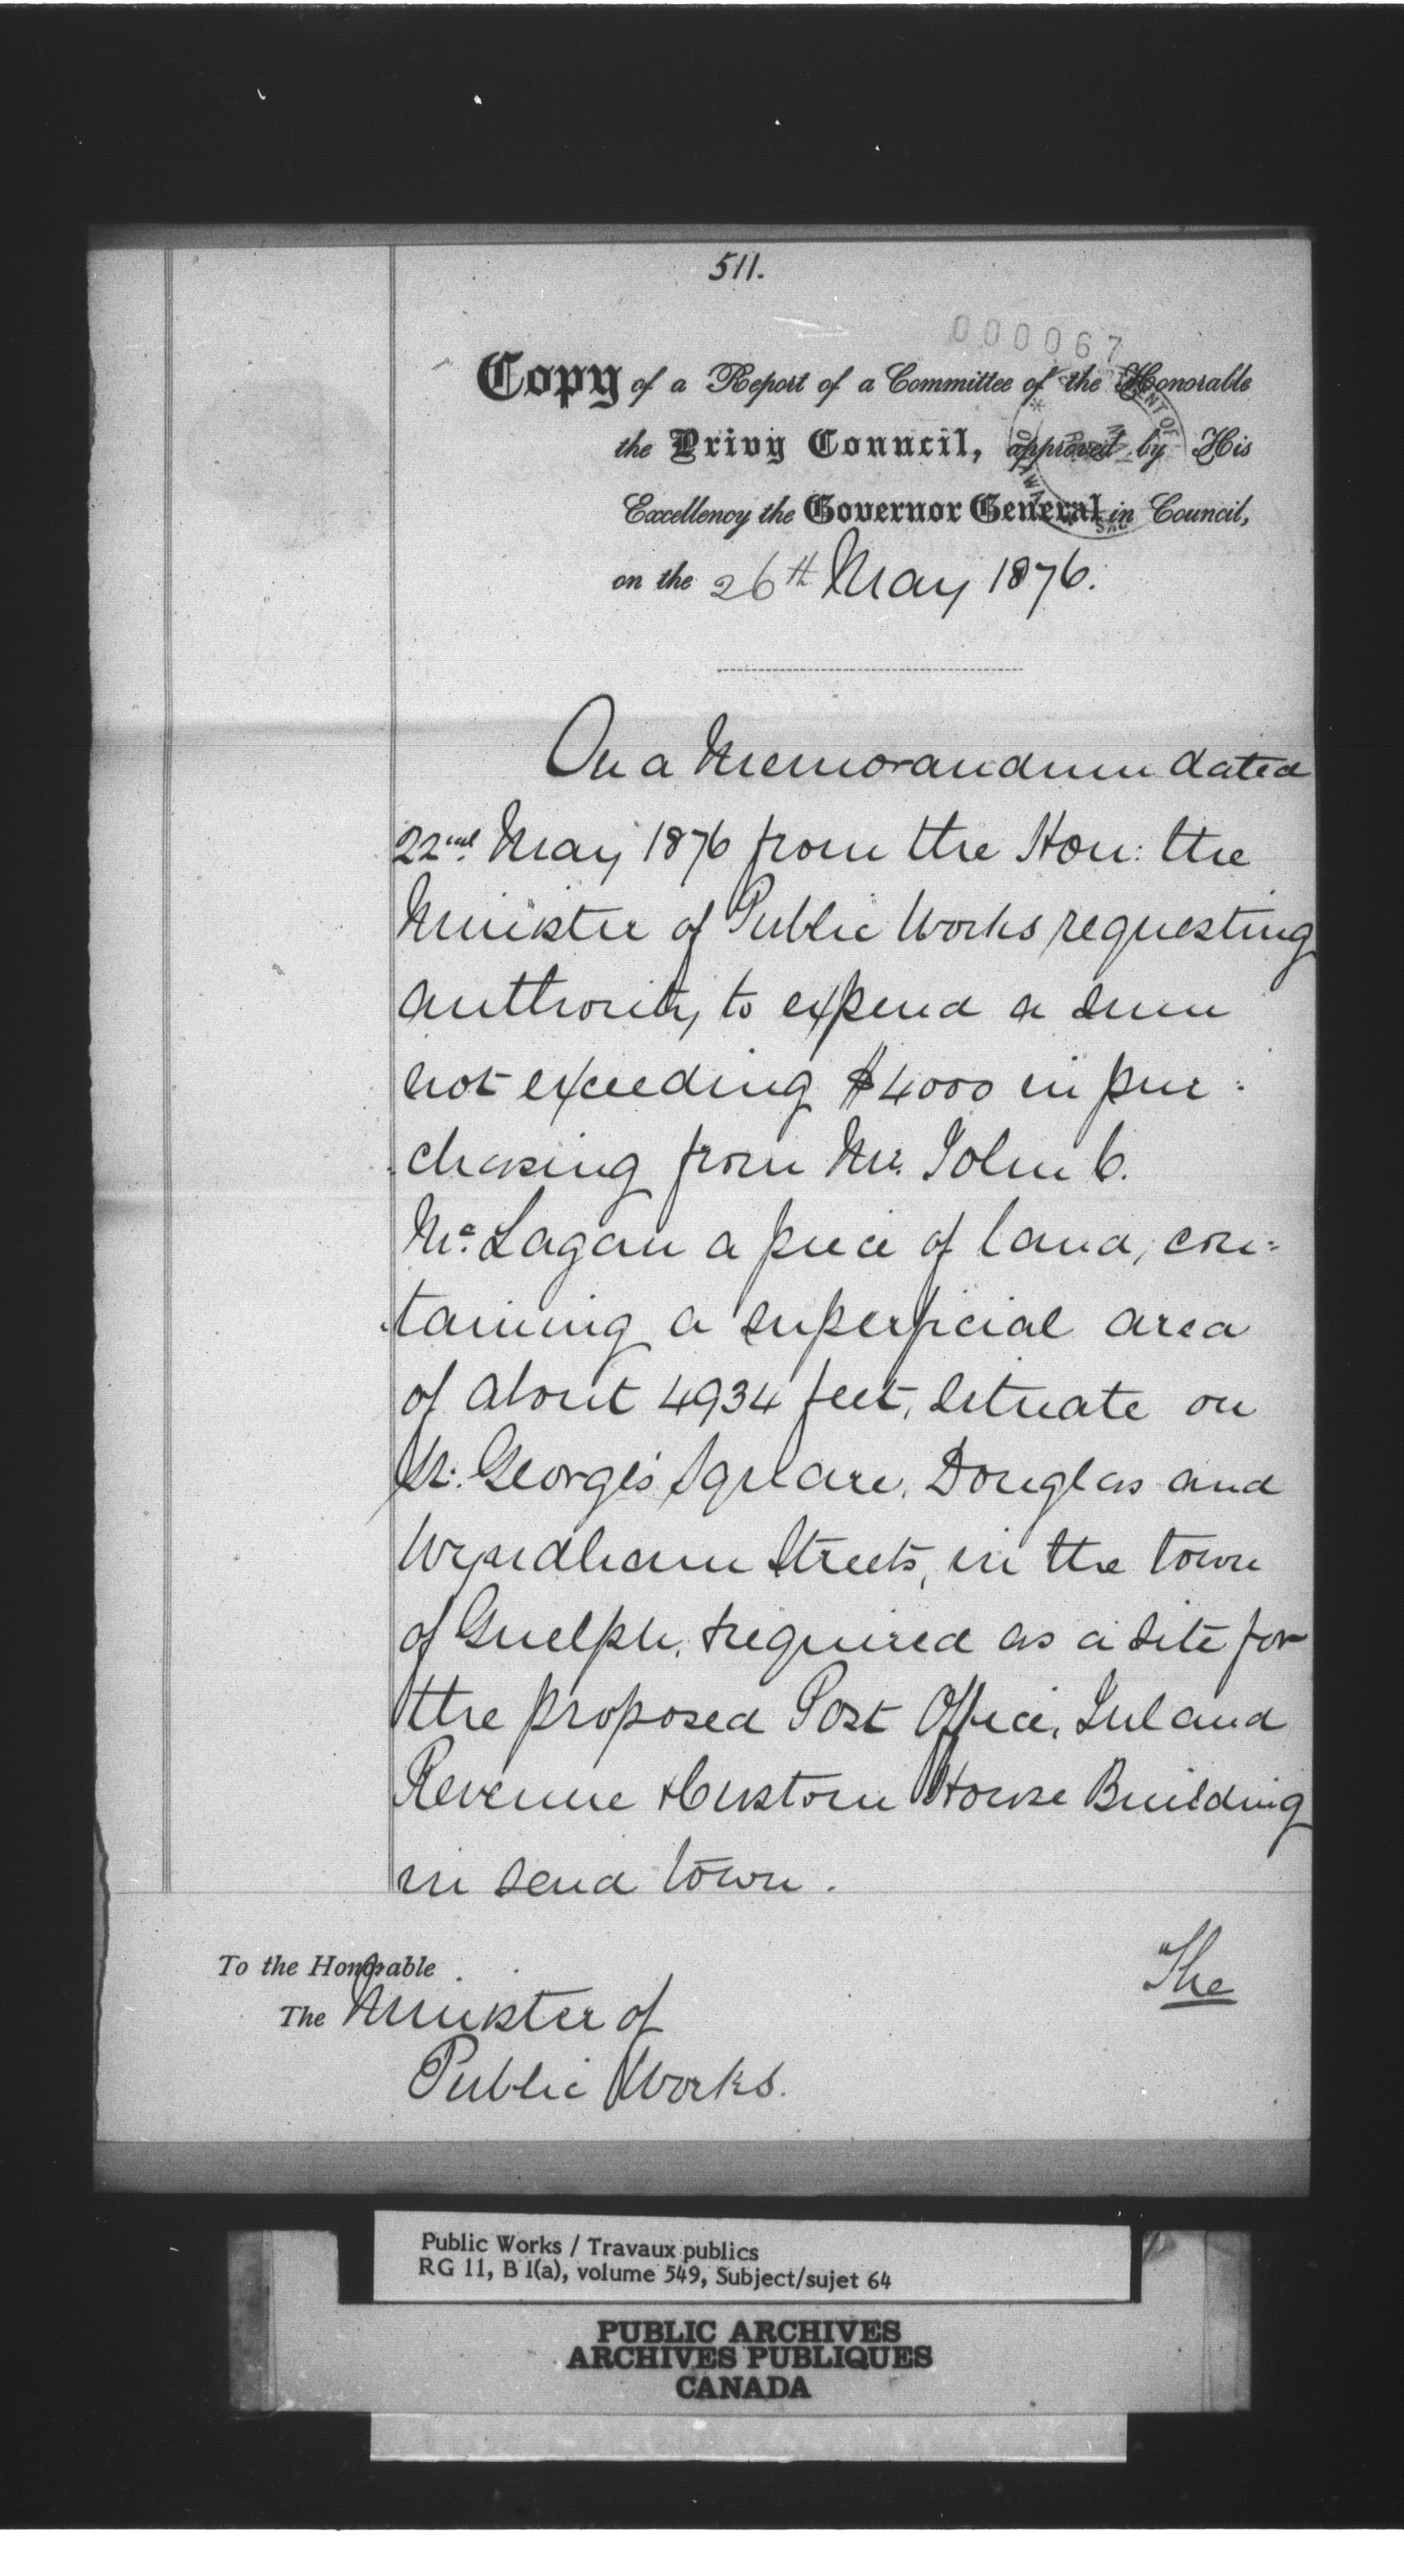 511.
000067
Copy of a Report of a Committee of the Honorable
the Privy Council, approved by His
Excellency the Governor General in Council,
on the 26th May 1876.
On a Memorandum dated
22nd May 1876 from the Hon: the
Minister of Public Works requesting
authority to expend a sum
not exceeding $4000 in pur:
chasing from Mr. John C.
Mc. Lagan a piece of land, con:
taining a superficial area
of about 4934 feet, situate on
St. George's Square, Douglas and
Wyndham Streets, in the town
of Guelph, required as a site for
the proposed Post Office, Inland
Revenue & Custom House Building
in said town.
The
To the Honorable
The Minister of
Public Works.
Public Works / Travaux publics
RG 11, B 1(a), volume 549, Subject/sujet 64
PUBLIC ARCHIVES
ARCHIVES PUBLIQUES
CANADA